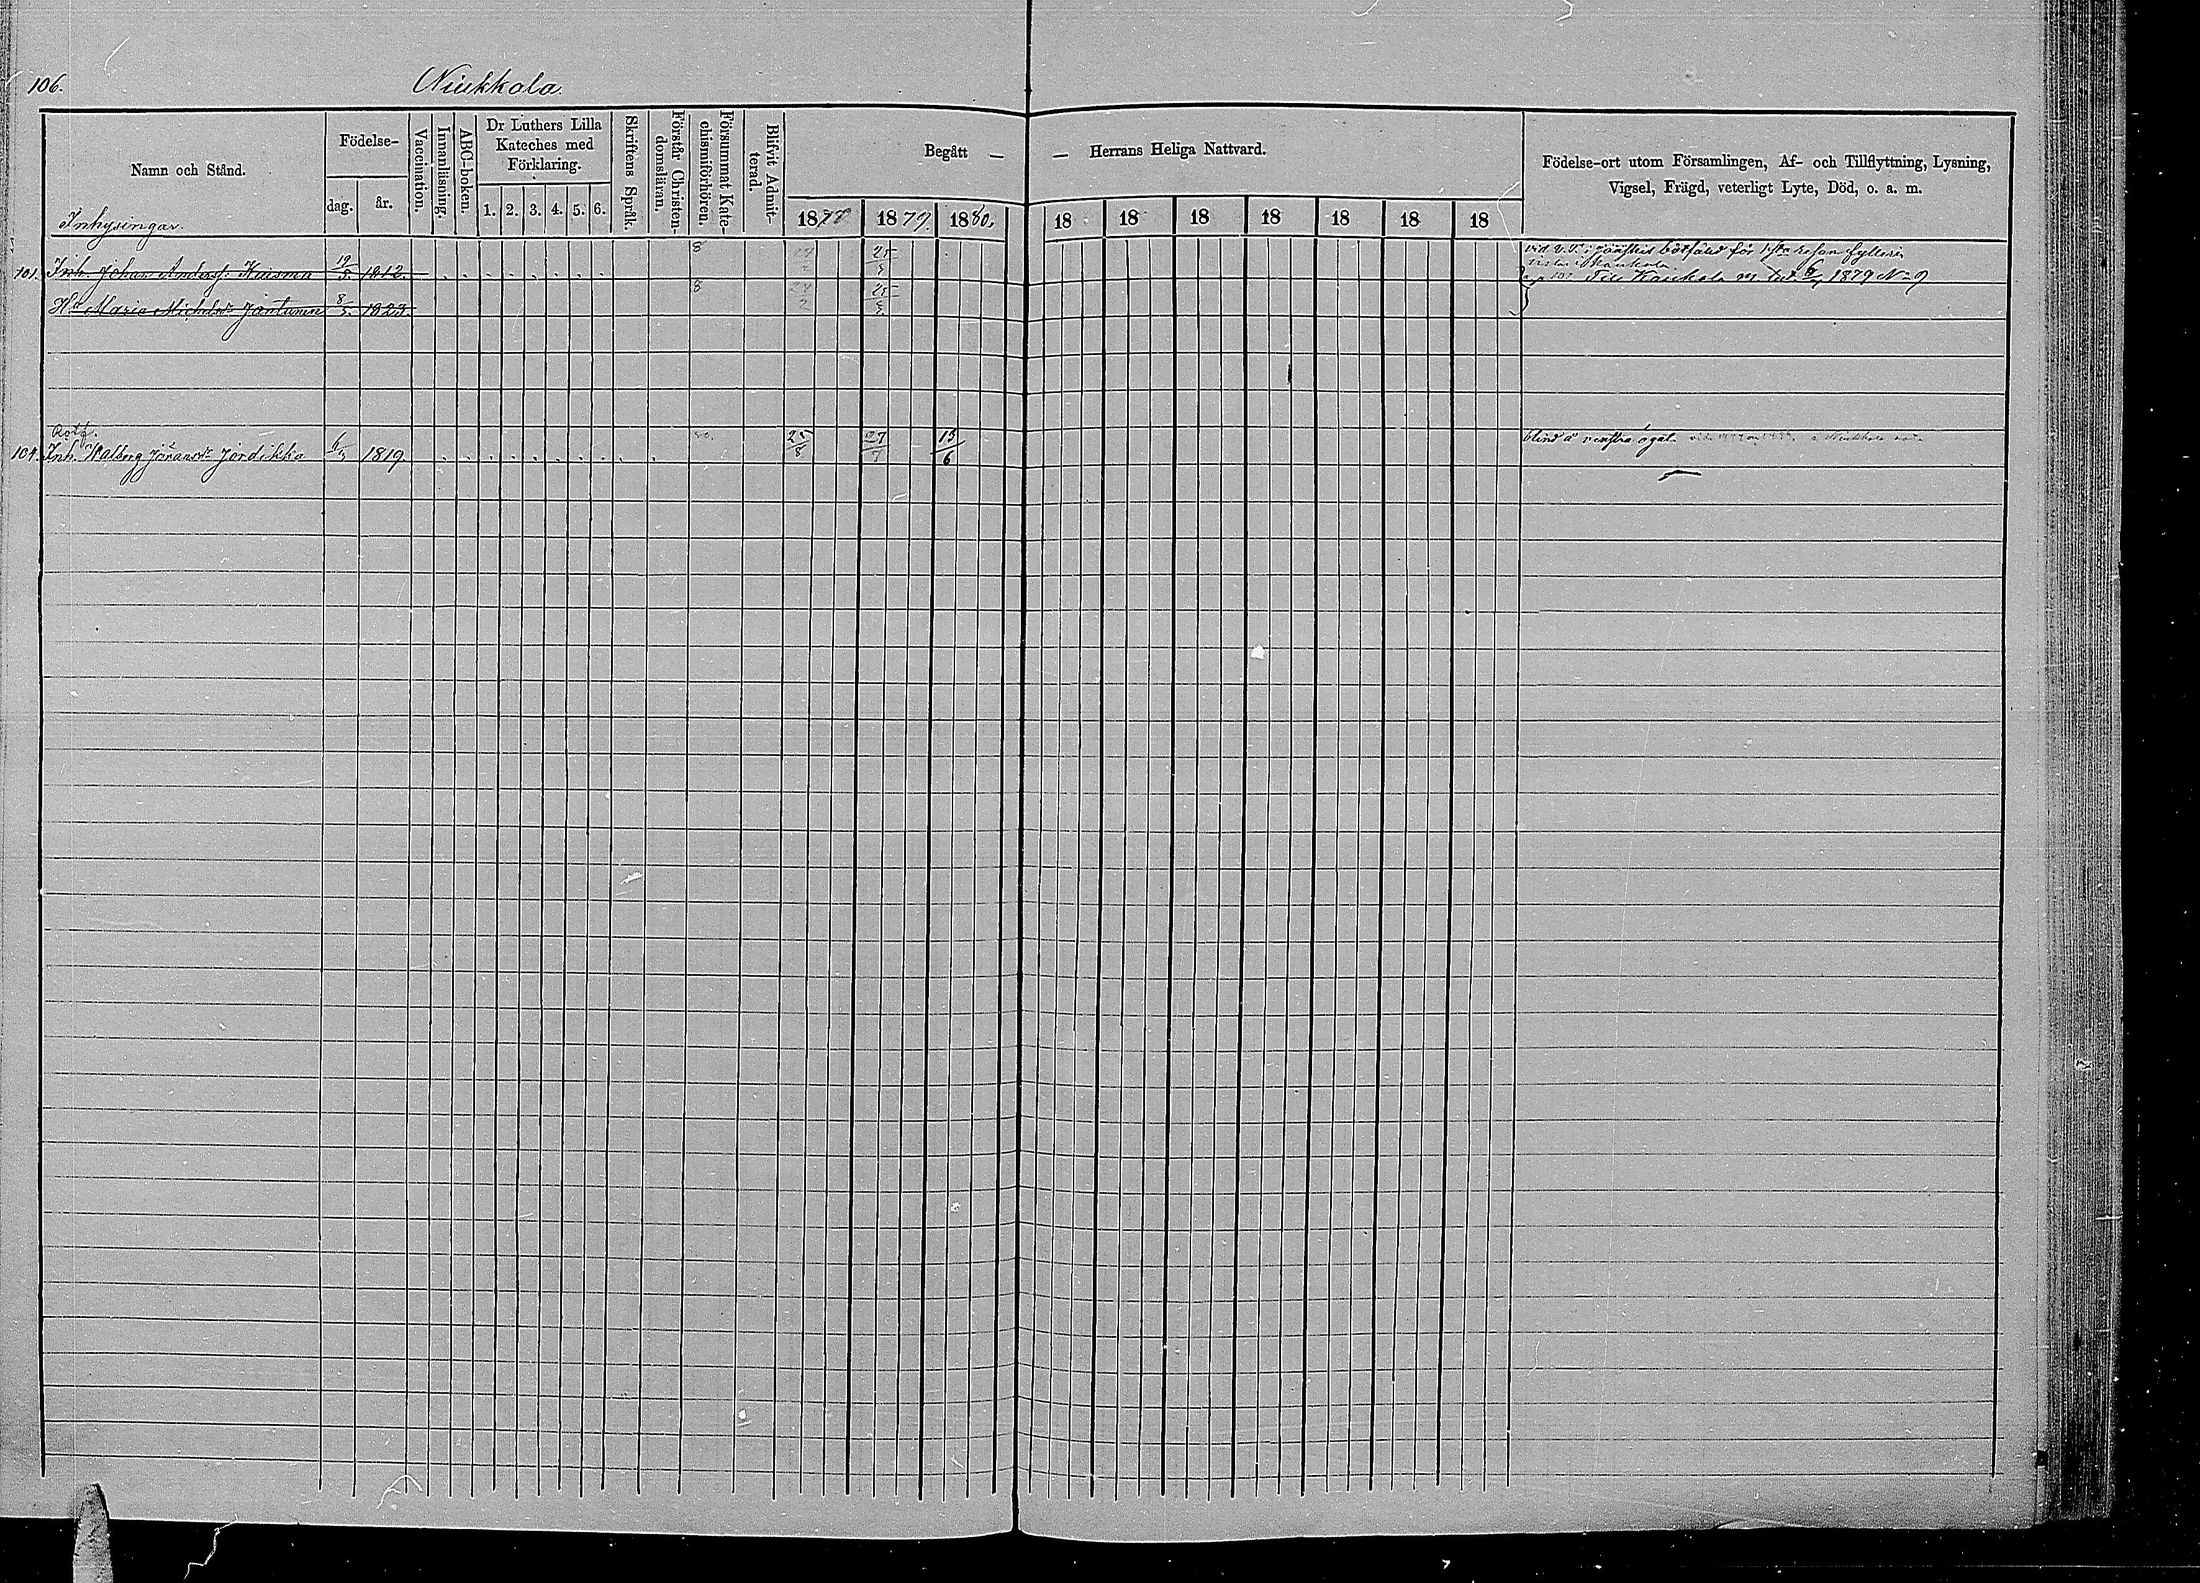 106.
Niukkala.
Namn och Stånd.
Födelse-
dag.
år.
Vaccination.
Innanläsning.
ABC-boken.
Dr Luthers Lilla
Kateches med
Förklaring.
1. 2. 3. 4. 5. 6.
Skriftens Språk.
Förstår Christen-
domsläran.
Försummat Kate-
chismiförhören.
Blifvit Admit-
terad.
Begått —
— Herrans Heliga Nattvard.
1879. 1880.
18 18 18 18 18 18 18
Födelse-ort utom Församlingen, Af- och Tillflyttning, Lysning,
Vigsel, Frägd, veterligt Lyte, Död, o. a. m.
Inhysingar.
101. Inh. Johan Anderss. 19/5 1812. 8
bötfäld för 1sta resan fylleri
Till Kaukola 1879 No 9
Hu Maria Michelsdr Jantunen 8/5 1823. 8
Rotf.
104. Inh. Walborg Jöransdr Jordikka 1819 25/8 27/7 13/6 blind å venstra ögat.